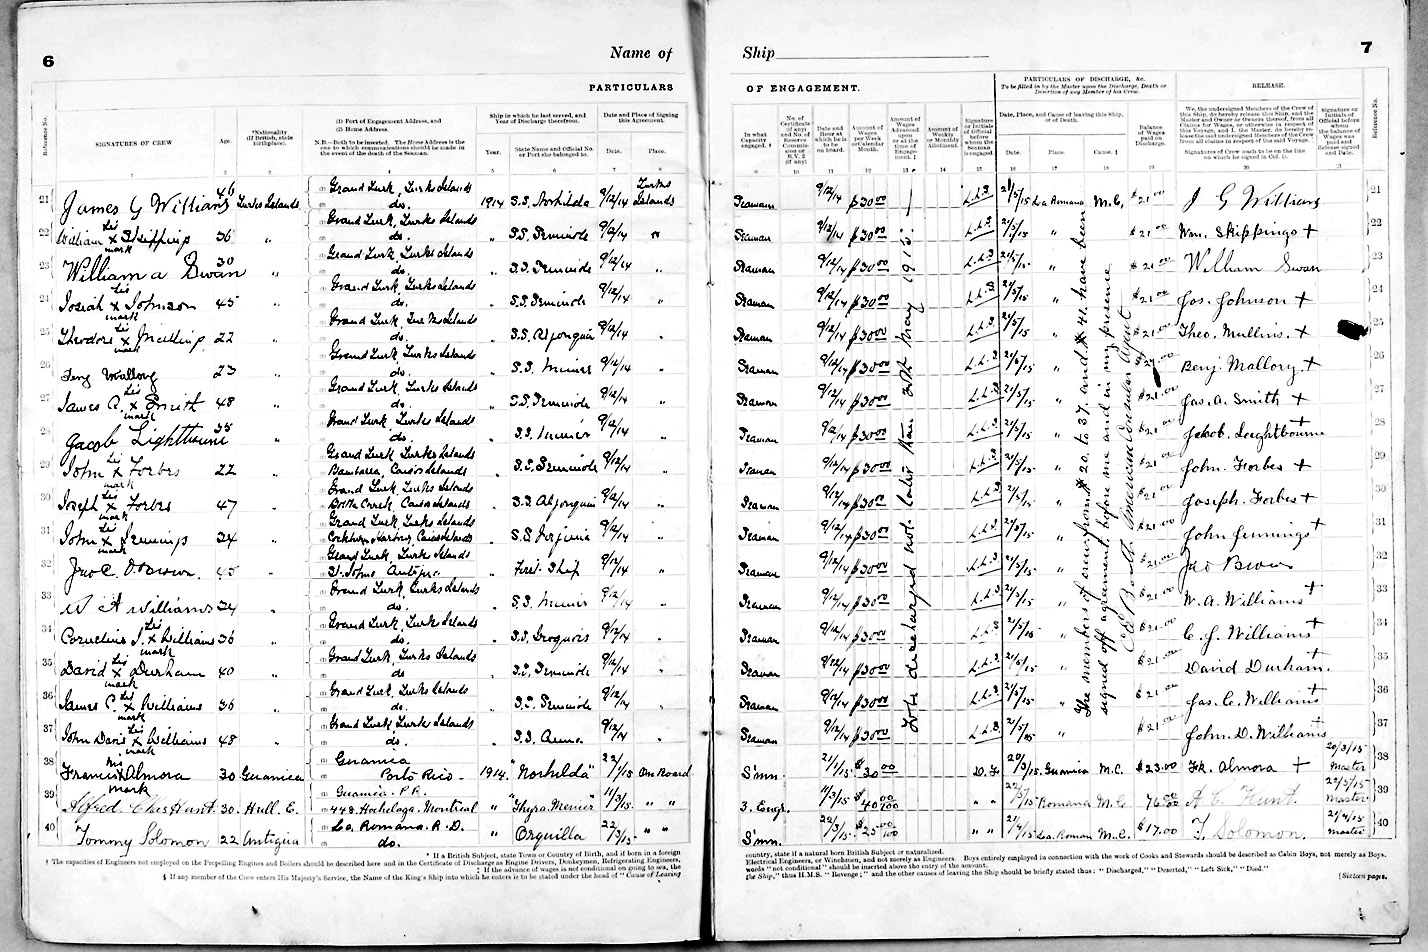 6
Name of
Ship
7
PARTICULARS
OF ENGAGEMENT.
PARTICULARS OF DISCHARGE, &c.
To be filled in by the Master upon the Discharge, Death or Desertion of any Member of his Crew.
RELEASE.
Reference No.
SIGNATURES OF CREW
Age.
*Nationality (If British, state birthplace).
(1) Port of Engagement Address, and
(2) Home Address.
N.B.—Both to be inserted. The Home Address is the one to which communications should be made in the event of the death of the Seaman.
Ship in which he last served, and Year of Discharge therefrom.
Year.
State Name and Official No. or Port she belonged to.
Date and Place of Signing this Agreement.
Date.
Place.
In what Capacity engaged. †
Date and Hour at which he is to be on board.
Amount of Wages per Week or Calendar Month.
Amount of Wages Advanced upon or at the time of Engagement. ‡
Amount of Weekly or Monthly Allotment.
Signature or Initials of Official before whom the Seaman is engaged.
Date, Place, and Cause of leaving this Ship, or of Death.
Date.
Place.
Cause. §
Balance of Wages paid on Discharge.
We, the undersigned Members of the Crew of this Ship, do hereby release this Ship, and the Master and Owner or Owners thereof, from all Claims for Wages, or otherwise in respect of this Voyage, and I, the Master, do hereby release the undersigned Members of the Crew from all claims in respect of the said Voyage.
Signatures of Crew (each to be on the line on which he signed in Col. 1).
Signature or Initials of Official before whom the balance of Wages was paid and Release signed and Date.
Reference No.
21 James G Williams 46 Turks Islands Grand Turk, Turks Islands do. 1914 S.S. Norhilda 9/12/14 Turks Islands Seaman 9/12/14 $30.00 L.L.B. 21/5/15 La Romana M.C. $21.00 J G Williams 21
22 William his x mark Skippings 36 " Grand Turk, Turks Islands do. " S.S. Seminole 9/12/14 " Seaman 9/12/14 $30.00 L.L.B. 21/5/15 " $21.00 Wm. Skippings + 22
23 William a Swan 30 " Grand Turk, Turks Islands do. " S.S. Seminole 9/12/14 " Seaman 9/12/14 $30.00 L.L.B. 21/5/15 " $21.00 William Swan 23
24 Josiah his x mark Johnson 45 " Grand Turk, Turks Islands do. " S.S. Seminole 9/12/14 " Seaman 9/12/14 $30.00 L.L.B. 21/5/15 " $21.00 Jos. Johnson + 24
25 Theodore his x mark Mullins 22 " Grand Turk, Turks Islands do. " S.S. Algonquin 9/12/14 " Seaman 9/12/14 $30.00 L.L.B. 21/5/15 " $21.00 Theo. Mullins + 25
26 Benj Mallory 23 " Grand Turk, Turks Islands do. " S.S. Munier 9/12/14 " Seaman 9/12/14 $30.00 L.L.B. 21/5/15 " Benj. Mallory + 26
27 James A. his x mark Smith 48 " Grand Turk, Turks Islands do. " S.S. Seminole 9/12/14 " Seaman 9/12/14 $30.00 L.L.B. 21/5/15 " $21.00 Jas. A. Smith + 27
28 Jacob Lightbourne 38 " Grand Turk, Turks Islands do. " S.S. Munier 9/12/14 " Seaman 9/12/14 $30.00 L.L.B. 21/5/15 " $21.00 Jacob. Lightbourne 28
29 John his x mark Forbes 22 " Grand Turk, Turks Islands Bambarra, Caicos Islands " S.S. Seminole 9/12/14 " Seaman 9/12/14 $30.00 L.L.B. 21/5/15 " $21.00 John. Forbes + 29
30 Joseph his x mark Forbes 47 " Grand Turk, Turks Islands Bottle Creek, Caicos Islands " S.S. Algonquin 9/12/14 " Seaman 9/12/14 $30.00 L.L.B. 21/5/15 " $21.00 Joseph. Forbes + 30
31 John his x mark Jennings 24 " Grand Turk, Turks Islands Cockburn Harbor, Caicos Islands " S.S. Virginia 9/12/14 " Seaman 9/12/14 $30.00 L.L.B. 21/5/15 " $21.00 John Jennings + 31
32 Jno C. Brown. 45 " Grand Turk, Turks Islands St. Johns Antigua " First Ship 9/12/14 " Seaman 9/12/14 $30.00 L.L.B. 21/5/15 " $21.00 Jno Brown 32
33 W A Williams 24 " Grand Turk, Turks Islands do. " S.S. Munier 9/12/14 " Seaman 9/12/14 $30.00 L.L.B. 21/5/15 " $21.00 W. A. Williams + 33
34 Cornelius J. his x mark Williams 36 " Grand Turk, Turks Islands do. " S.S. Iroquois 9/12/14 " Seaman 9/12/14 $30.00 L.L.B. 21/5/15 " $21.00 C. J. Williams + 34
35 David his x mark Durham 40 " Grand Turk, Turks Islands do " S.S. Seminole 9/12/14 " Seaman 9/12/14 $30.00 L.L.B. 21/5/15 " $21.00 David Durham + 35
36 James C. his x mark Williams 36 " Grand Turk, Turks Islands do. " S.S. Seminole 9/12/14 " Seaman 9/12/14 $30.00 L.L.B. 21/5/15 " $21.00 Jas. C. Williams + 36
37 John Davis his x mark Williams 48 " Grand Turk, Turks Islands do. " S.S. 9/12/14 " Seaman 9/12/14 $30.00 L.L.B. 21/5/15 " $21.00 John. D. Williams + 37
To be discharged not later than 30th May 1915.
The members of crew from # 20 to 37 and # 41 have been signed off agreement, before me and in my presence
American Consular Agent
38 Francis his x mark Almora 30 Guanica Guanica Porto Rico - 1914 " Norhilda" 22/1/15 On Board S'mn. 21/1/15 $30.00 20/3/15 Guanica M.C. $23.00 Fk. Almora + 20/3/15 Master 38
39 Alfred Chas Hunt. 30. Hull. E. Guanica. P.R. 448 Hochelaga. Montreal " "Thyra Menier" 11/3/15 " " 3. Engr. 11/3/15 $40 00/100 " " 22/5/15 Romana M.C. 76.00 A C Hunt. 22/5/15 Master 39
40 Tommy Solomon 22 Antigua La Romana. R.D. do. " Orquilla 22/3/15 " " S'mn. 22/3/15 $25 00/100 " " 21/4/15 La Roman M.C. $17.00 T. Solomon. 21/4/15 Master 40
* If a British Subject, state Town or Country of Birth, and if born in a foreign country, state if a natural born British subject or naturalized.
† The capacities of Engineers not employed on the Propelling Engines and Boilers should be described here and in the Certificate of Discharge as Engine Drivers, Donkeymen, Refrigerating Engineers, Electrical Engineers, or Winchmen, and not merely as Engineers. Boys entirely employed in connection with the work of Cooks and Stewards should be described as Cabin Boys, not merely as Boys.
‡ If the advance of wages is not conditional on going to sea, the words "not conditional" should be inserted above the entry of the amount.
§ If any member of the Crew enters His Majesty's Service, the Name of the King's Ship into which he enters is to be stated under the head of "Cause of Leaving the Ship," thus H.M.S. "Revenge;" and the other causes of leaving the Ship should be briefly stated thus: "Discharged," "Deserted," "Left Sick," "Died."
[Sixteen pages.